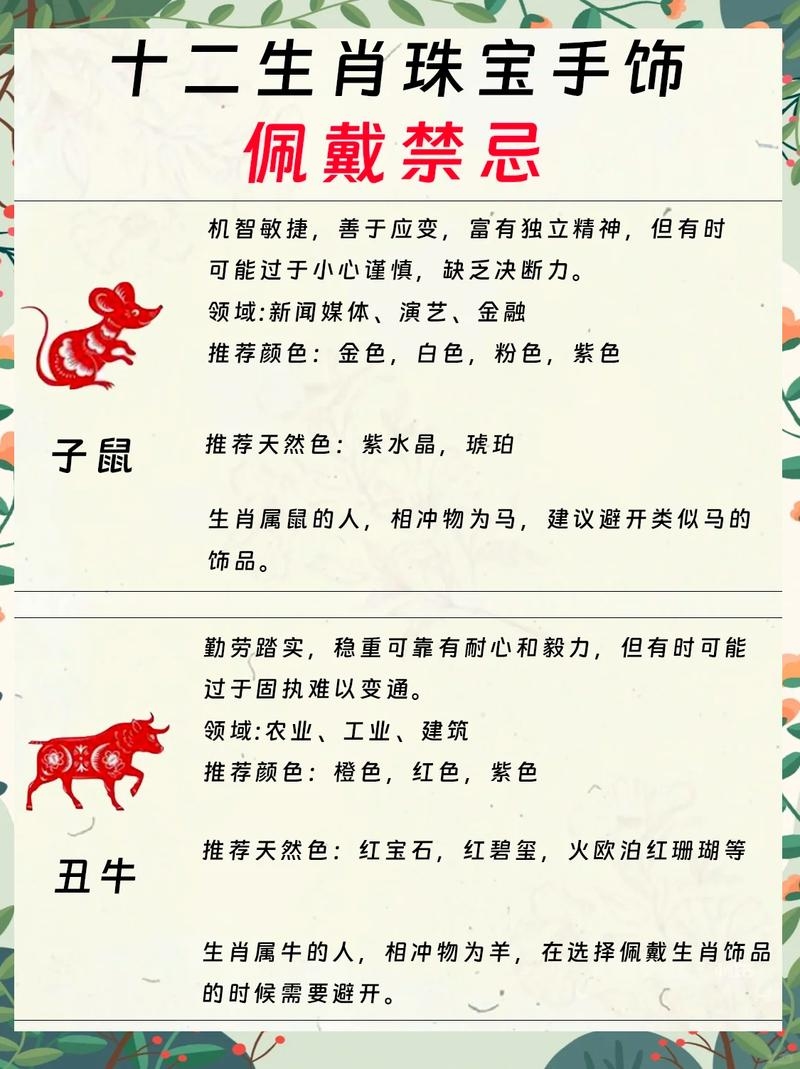 十二生肖珠宝手饰
佩戴禁忌
机智敏捷，善于应变，富有独立精神，但有时
可能过于小心谨慎，缺乏决断力。
领域:新闻媒体、演艺、金融
推荐颜色：金色，白色，粉色，紫色
子鼠
推荐天然色：紫水晶，琥珀
生肖属鼠的人，相冲物为马，建议避开类似马的
饰品。
勤劳踏实，稳重可靠有耐心和毅力，但有时可能
过于固执难以变通。
领域:农业、工业、建筑
推荐颜色：橙色，红色，紫色
推荐天然色：红宝石，红碧玺，火欧泊红珊瑚等
丑牛
生肖属牛的人，相冲物为羊，在选择佩戴生肖饰品
的时候需要避开。